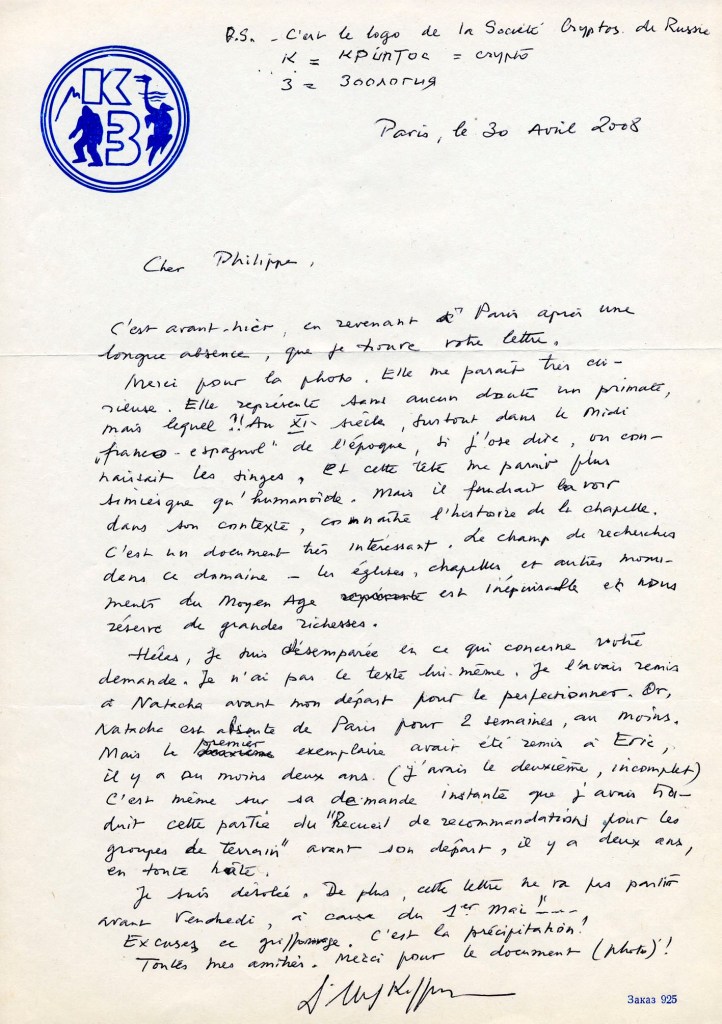 P.S. - C'est le logo de la Société Cryptos. de Russie
K = КРИПТОС = crypto
З = ЗООЛОГИЯ
КЗ
Paris, le 30 Avril 2008
Cher Philippe,
C'est avant-hier, en revenant à Paris après une
longue absence, que je trouve votre lettre.
Merci pour la photo. Elle me paraît très cu-
rieuse. Elle représente sans aucun doute un primate,
mais lequel ?! Au XI- siècle, surtout dans le Midi
"franco-espagnol" de l'époque, si j'ose dire, on con-
naissait les singes, et cette tête me paraît plus
simiesque qu'humanoïde. Mais il faudrait la voir
dans son contexte, connaître l'histoire de la chapelle.
C'est un document très intéressant. Le champ de recherches
dans ce domaine - les églises, chapelles et autres monu-
ments du Moyen Age est inépuisable et nous
réserve de grandes richesses.
Hélas, je suis désemparée en ce qui concerne votre
demande. Je n'ai pas le texte lui-même. Je l'avais remis
à Natacha avant mon départ pour le perfectionner. Or,
Natacha est absente de Paris pour 2 semaines, au moins.
Mais le premier exemplaire avait été remis à Eric,
il y a au moins deux ans. (J'avais le deuxième, incomplet)
C'est même sur sa demande instante que j'avais tra-
duit cette partie du "Recueil de recommandations pour les
groupes de terrain" avant son départ, il y a deux ans,
en toute hâte.
Je suis désolée. De plus, cette lettre ne va pas partir
avant Vendredi, à cause du 1er Mai !---
Excusez ce griffonnage. C'est la précipitation!
Toutes mes amitiés. Merci pour le document (photo)!
Заказ 925